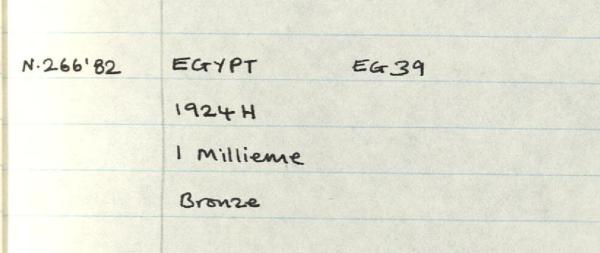 N.266'82 EGYPT EG 39
1924 H
1 Millieme
Bronze